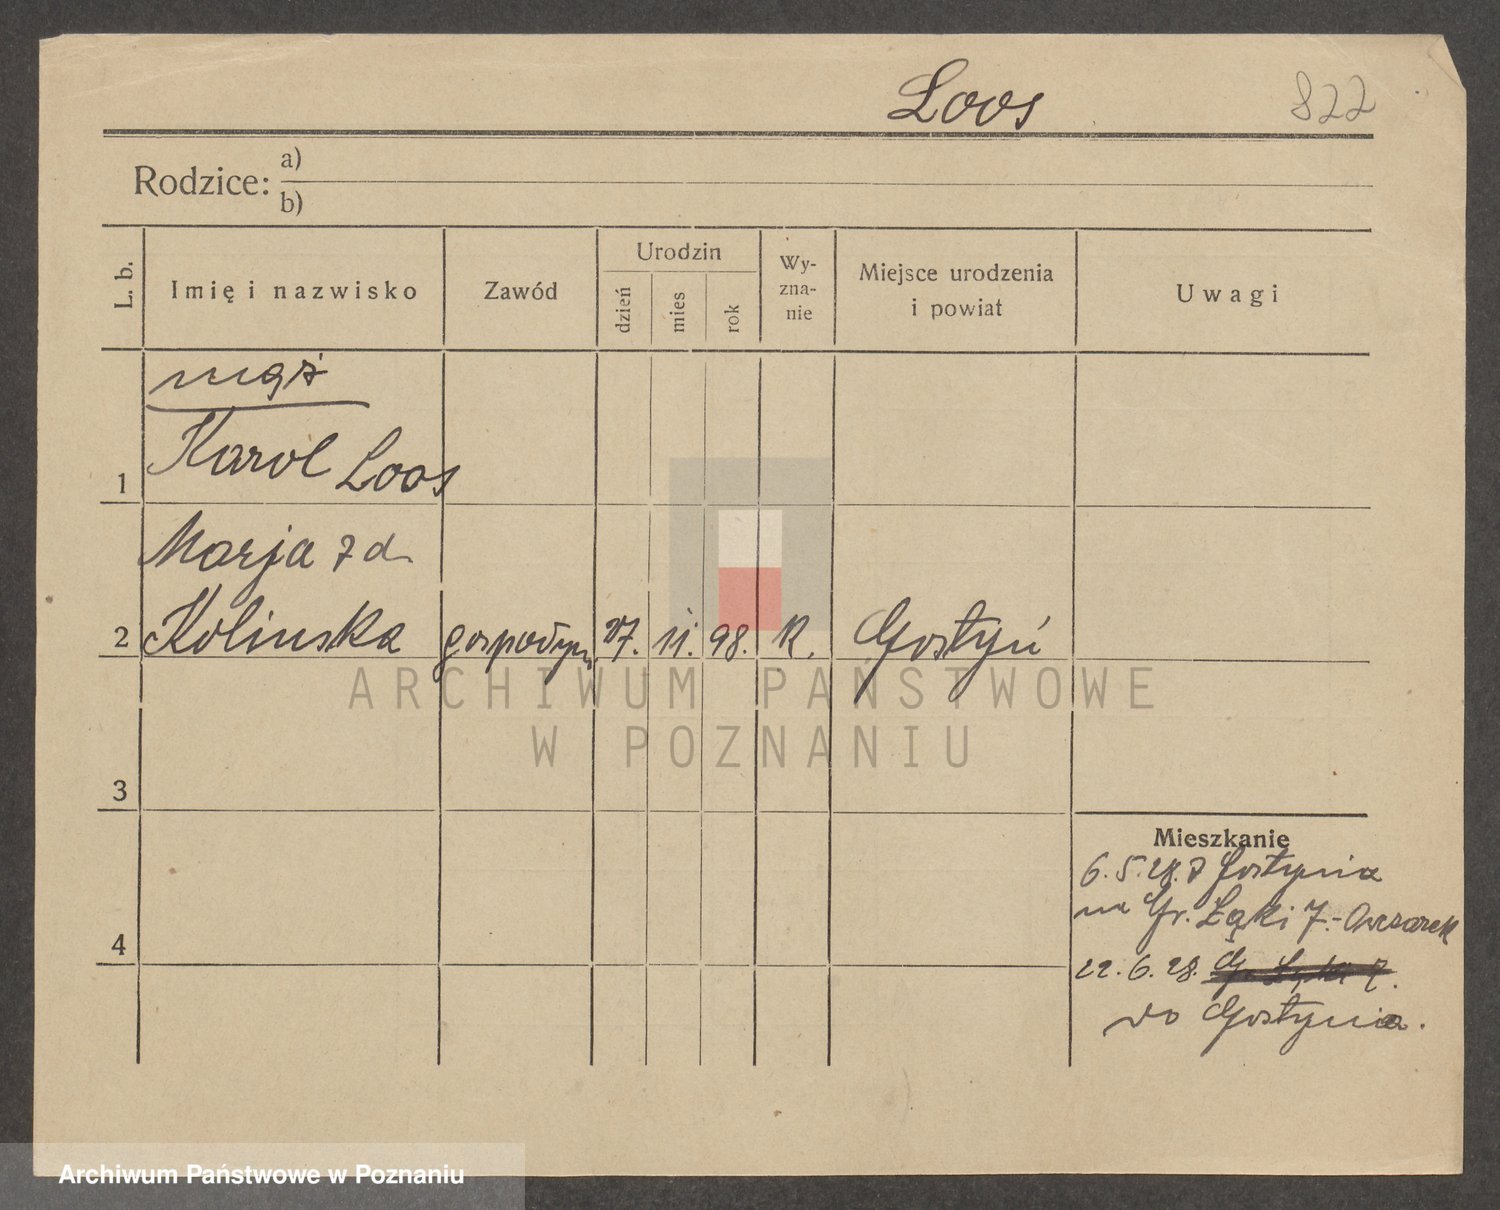 Loos 822
Rodzice: a)
b)
L. b. Imię i nazwisko Zawód Urodzin dzień mies rok Wy-zna-nie Miejsce urodzenia i powiat Uwagi
mąż
1 Karol Loos
Marja z d.
2 Kolinska gospodyni 27. 11. 98. K. Gostyń
ARCHIWUM PAŃSTWOWE
W POZNANIU
3
Mieszkanie
6. 5. 28. z Gostynia
na Gr. Łąki 7.- Owczarek
4
22. 6. 28. Gr. Łąki 7.
do Gostynia.
Archiwum Państwowe w Poznaniu